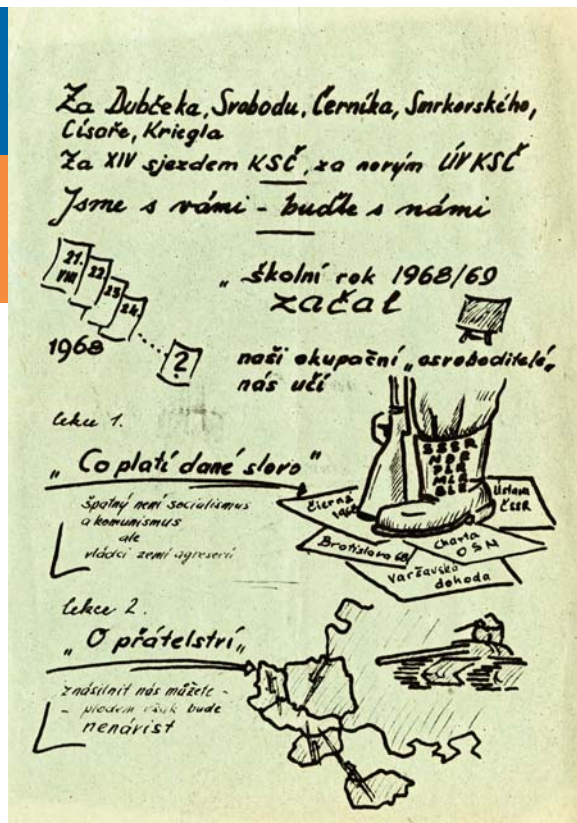 Za Dubčeka, Svobodu, Černíka, Smrkovského,
Císaře, Kriegla
Za XIV sjezdem KSČ, za novým ÚV KSČ
Jsme s vámi - buďte s námi
21. VIII
22
23
24.
?
1968
„ školní rok 1968/69
začal
naši okupační „osvoboditelé„
nás učí
lekce 1.
„ Co platí dané slovo "
špatný není socialismus
a komunismus
ale
vládci zemí agresorů
SSSR
NDR
PLR
MLR
BLR
Čierna
1968
Bratislava 68
Charta
OSN
Ústava
ČSSR
Varšavská
dohoda
lekce 2.
„ O přátelství„
znásilnit nás můžete -
- plodem však bude
nenávist